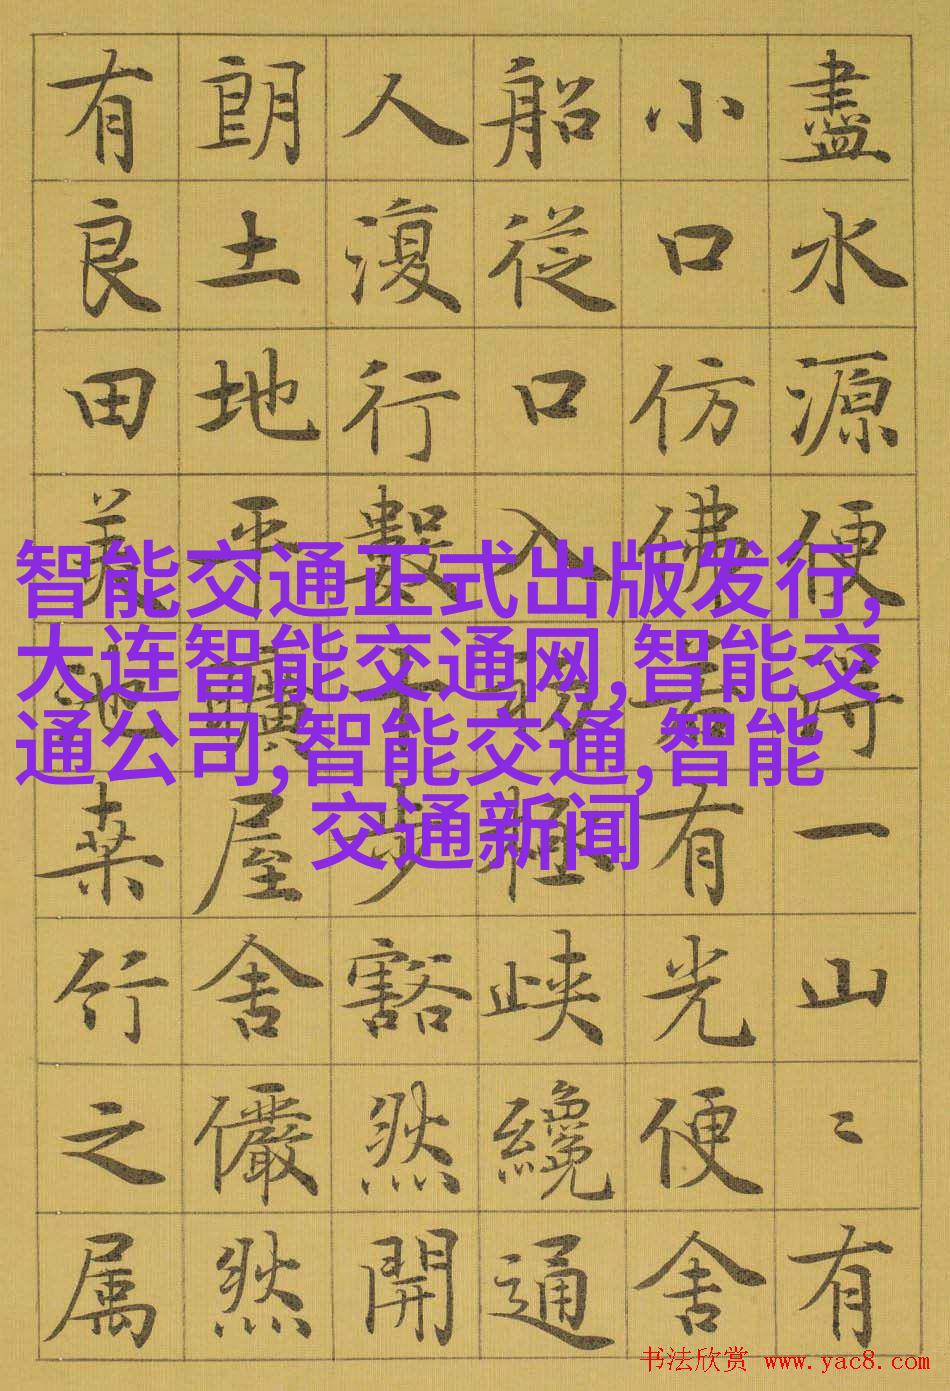 盡水源便得一山〻有
小口仿佛若有光便舍
船從口入初極峽纔通
人復行數十步豁然開
朗土地平曠屋舍儼然
有良田美池桑竹之属
智能交通正式出版发行,
大连智能交通网,智能交
通公司,智能交通,智能
交通新闻
书法欣赏 www.yac8.com